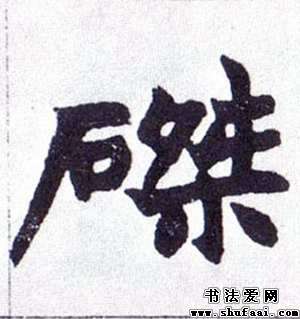 磔
书法爱网
www.shufaai.com